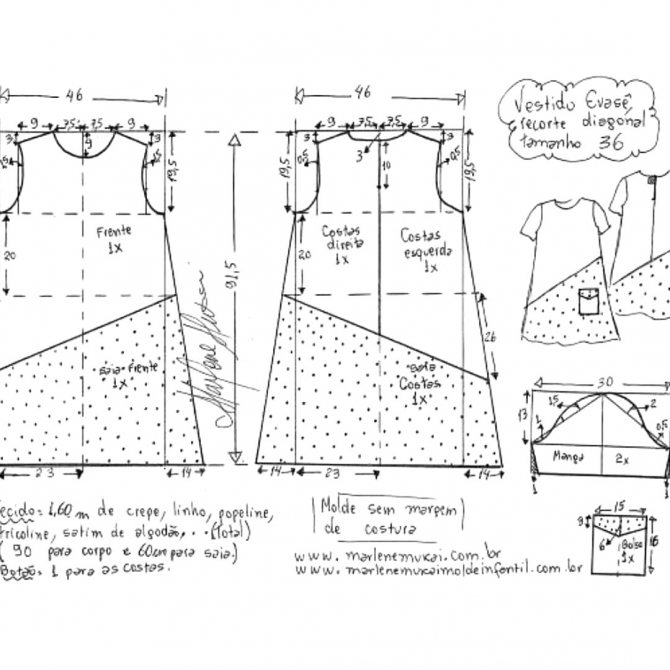 46
9 7,5 7,5 9
3
9
3
0,5
0,5
19,5
Frente
1x
20
91,5
saia frente
1x
23
14
46
9 7,5 7,5 9
3
3
3
19,5
10
0,5
19,5
Costas
direita
1x
Costas
esquerda
1x
20
26
saia
Costas
1x
14
23
14
Vestido Evasê
recorte diagonal
tamanho 36
30
13
1
1,5
2
0,5
Manga 2x
1
1
15
9
6
Bolso
1x
16
Tecido = 1,60 m de crepe, linho, popeline,
tricoline, satim de algodão, .. (Total)
( 90 para corpo e 60cm para saia.)
Botão = 1 para as costas.
Molde sem margem
de costura
www.marlenemukai.com.br
www.marlenemukaimoldeinfantil.com.br